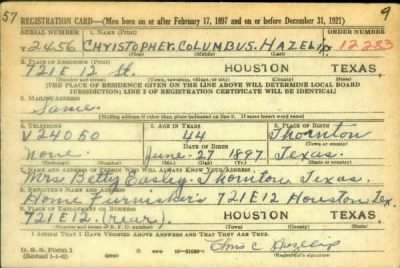 57
9
REGISTRATION CARD—(Men born on or after February 17, 1897 and on or before December 31, 1921)
SERIAL NUMBER 1. NAME (Print) ORDER NUMBER
2456 CHRISTOPHER. COLUMBUS. HAZELIP 12283
(First) (Middle) (Last)
2. PLACE OF RESIDENCE (Print)
721 E 12 St. HOUSTON TEXAS.
(Number and street) (Town, township, village, or city) (County) (State)
[THE PLACE OF RESIDENCE GIVEN ON THE LINE ABOVE WILL DETERMINE LOCAL BOARD
JURISDICTION; LINE 2 OF REGISTRATION CERTIFICATE WILL BE IDENTICAL]
3. MAILING ADDRESS
Same.
[Mailing address if other than place indicated on line 2. If same insert word same]
4. TELEPHONE 5. AGE IN YEARS 6. PLACE OF BIRTH
V24050 44 Thornton
DATE OF BIRTH (Town or county)
none. June-27 1897 Texas.
(Exchange) (Number) (Mo.) (Day) (Yr.) (State or country)
7. NAME AND ADDRESS OF PERSON WHO WILL ALWAYS KNOW YOUR ADDRESS
Mrs Betty Easley Thornton Texas.
8. EMPLOYER'S NAME AND ADDRESS
Home Furnishers 721 E 12 Houston Tex.
9. PLACE OF EMPLOYMENT OR BUSINESS
721 E 12. (rear). HOUSTON TEXAS.
(Number and street or R. F. D. number) (Town) (County) (State)
I AFFIRM THAT I HAVE VERIFIED ABOVE ANSWERS AND THAT THEY ARE TRUE.
D. S. S. Form 1
(Revised 1-1-42) (over)
C. Hazelip